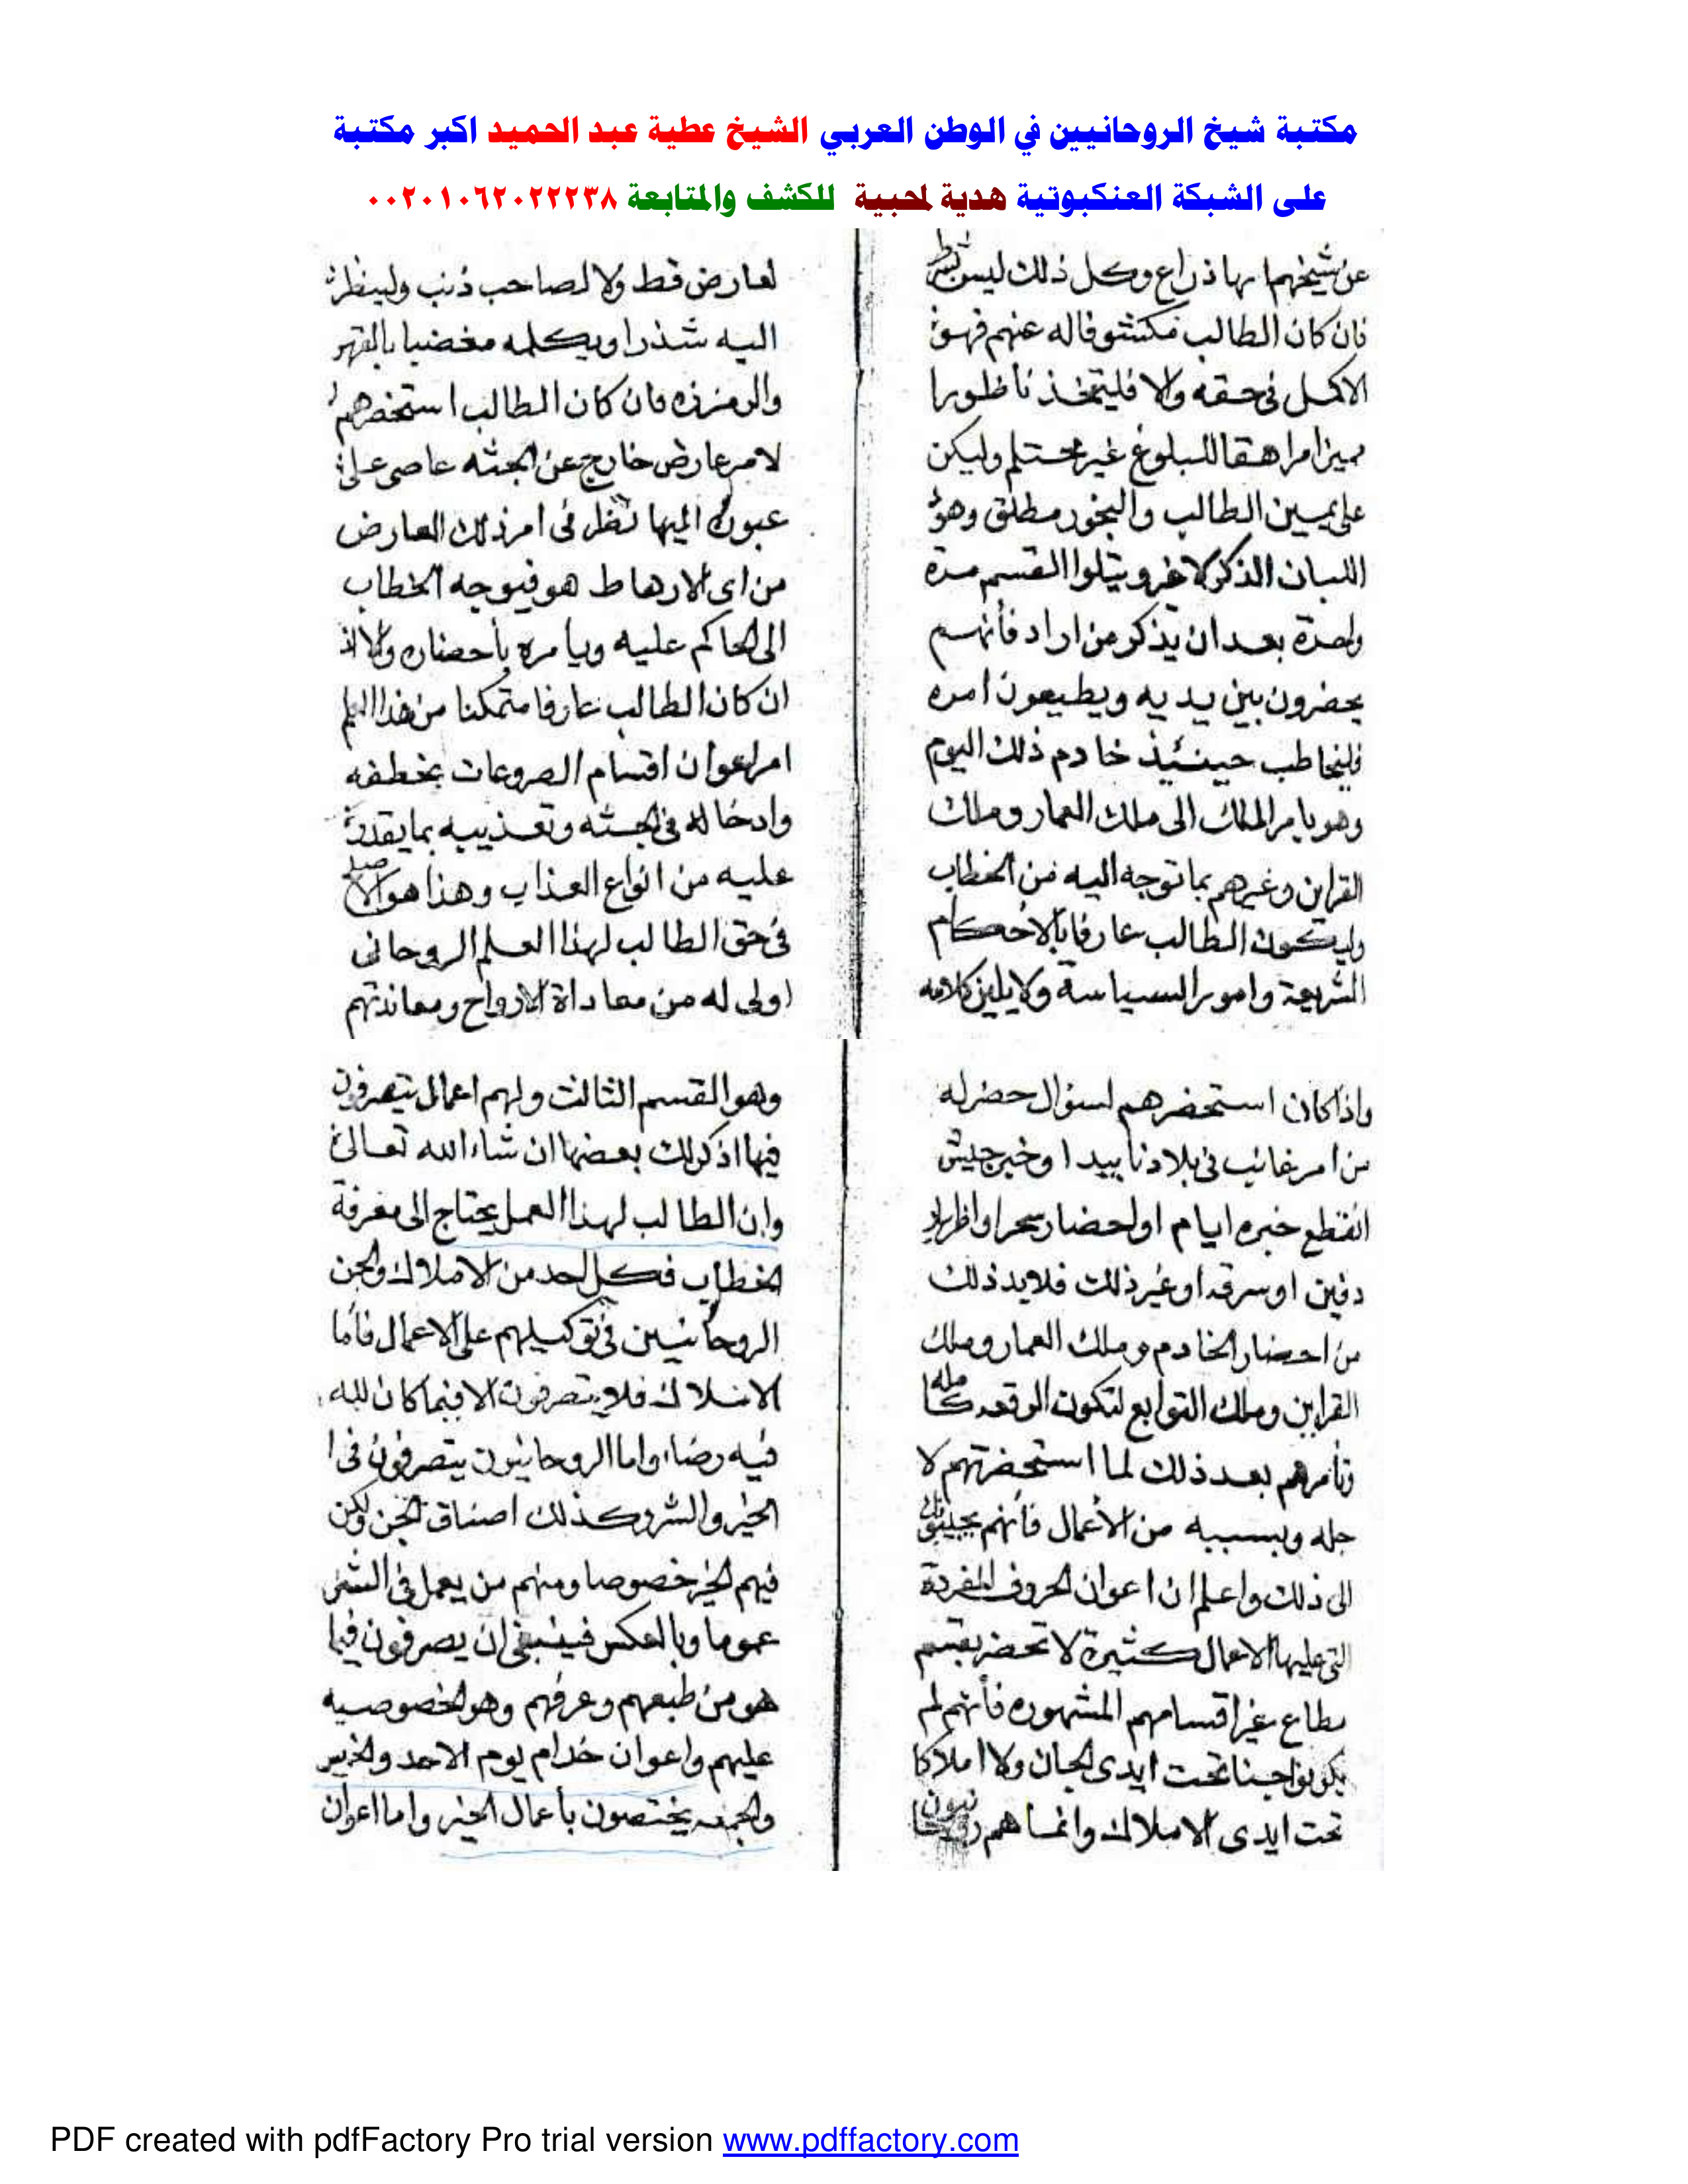 مكتبة شيخ الروحانيين في الوطن العربي الشيخ عطية عبد الحميد اكبر مكتبة
على الشبكة العنكبوتية هدية لمحبية للكشف والمتابعة ٠٠٢٠١٠٦٢٠٢٢٢٣٨
عن شيخهما بهاذراع وكل ذلك ليس بشرط
فان كان الطالب فاله عنهم فهو
الاكمل فى حقه والا فليتخذ ناظورا
مميزا مراهقا للبلوغ غير محتلم وليكن
على يمين الطالب والبخور مطلق وهو
اللبان الذكر لا غير ويتلوا القسم مرة
واحدة بعد ان يذكر من اراد فأنهم
يحضرون بين يديه ويطيعون امره
فليخاطب حينئيذ خادم ذلك اليوم
وهو يامر الملك الى ملك العمار وملك
القراين وغيرهم بما توجه اليه من الخطاب
وليكون الطالب عارفا بالاحكام
الشريعة وامور السياسة ولا يلين كلامه
لعارض قط ولا لصاحب ذنب ولينظر
اليه شذرا ويكلمه مغضبا بالقهر
فان كان الطالب استحضرهم
لامر عارض خارج عن الجثه عاصى على
اليها نظر فى امر ذلك العارض
من اى الارهاط هو فيوجه الخطاب
الى الحاكم عليه ويامره بأحضاره والا
ان كان الطالب عارفا متمكنا من هذا العلم
امر اعوان اقسام الصروعات بخطفه
وادخاله فى الجسثه وتعذيبه بما يقدر
عليه من انواع العذاب وهذا هو الاصلح
فى حق الطالب لهذا العلم الروحانى
اولى له من معاداة الارواح ومعاندتهم
واذا كان استحضرهم لسئوال حضر له
من امر غائب فى بلاد نا بيد او خبر جيش
انقطع خبره ايام او لحضار سحر او اظهار
دفين او سرقه او غير ذلك فلابد ذلك
من احضار الخادم وملك العمار وملك
القراين وملك التوابع لتكون الوقعه كامله
وتأمرهم بعد ذلك لما استحضرتهم لا
جله وبسببه من الأعمال فأنهم يجيبونك
الى ذلك واعلم ان اعوان الحروف المفردة
التى عليها الاعمال كثيرة لا تحضر بقسم
يطاع غير اقسامهم المشهوره فأنهم لم
يكونوا جنا تحت ايدى الجان ولا املاكا
تحت ايدى الاملاك وانما هم روحانيون
وهو القسم الثالث ولهم اعمال يتصرفون
فيها اذكر لك بعضها ان شاء الله تعالى
وان الطالب لهذا العمل يحتاج الى معرفة
الخطاب فكل احد من الاملاك والجن
الروحانيين فى توكيلهم على الاعمال فأما
الاملاك فلا يتصرفون الا فيما كان لله
فيه رضاء واما الروحانيون يتصرفون فى
الخير والشر وكذلك اصناف الجن ولكن
فيهم الخير خصوصا ومنهم من يعمل فى الشر
عموما وبالعكس فينبغى ان يصرفون فيما
هو من طبعهم وعرفهم وهو الخصوصيه
عليهم واعوان خدام يوم الاحد والخميس
والجمعه يختصون بأعمال الخير واما اعوان
PDF created with pdfFactory Pro trial version www.pdffactory.com